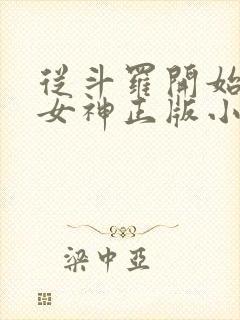 從斗羅開始
女神正版小
梁中亞